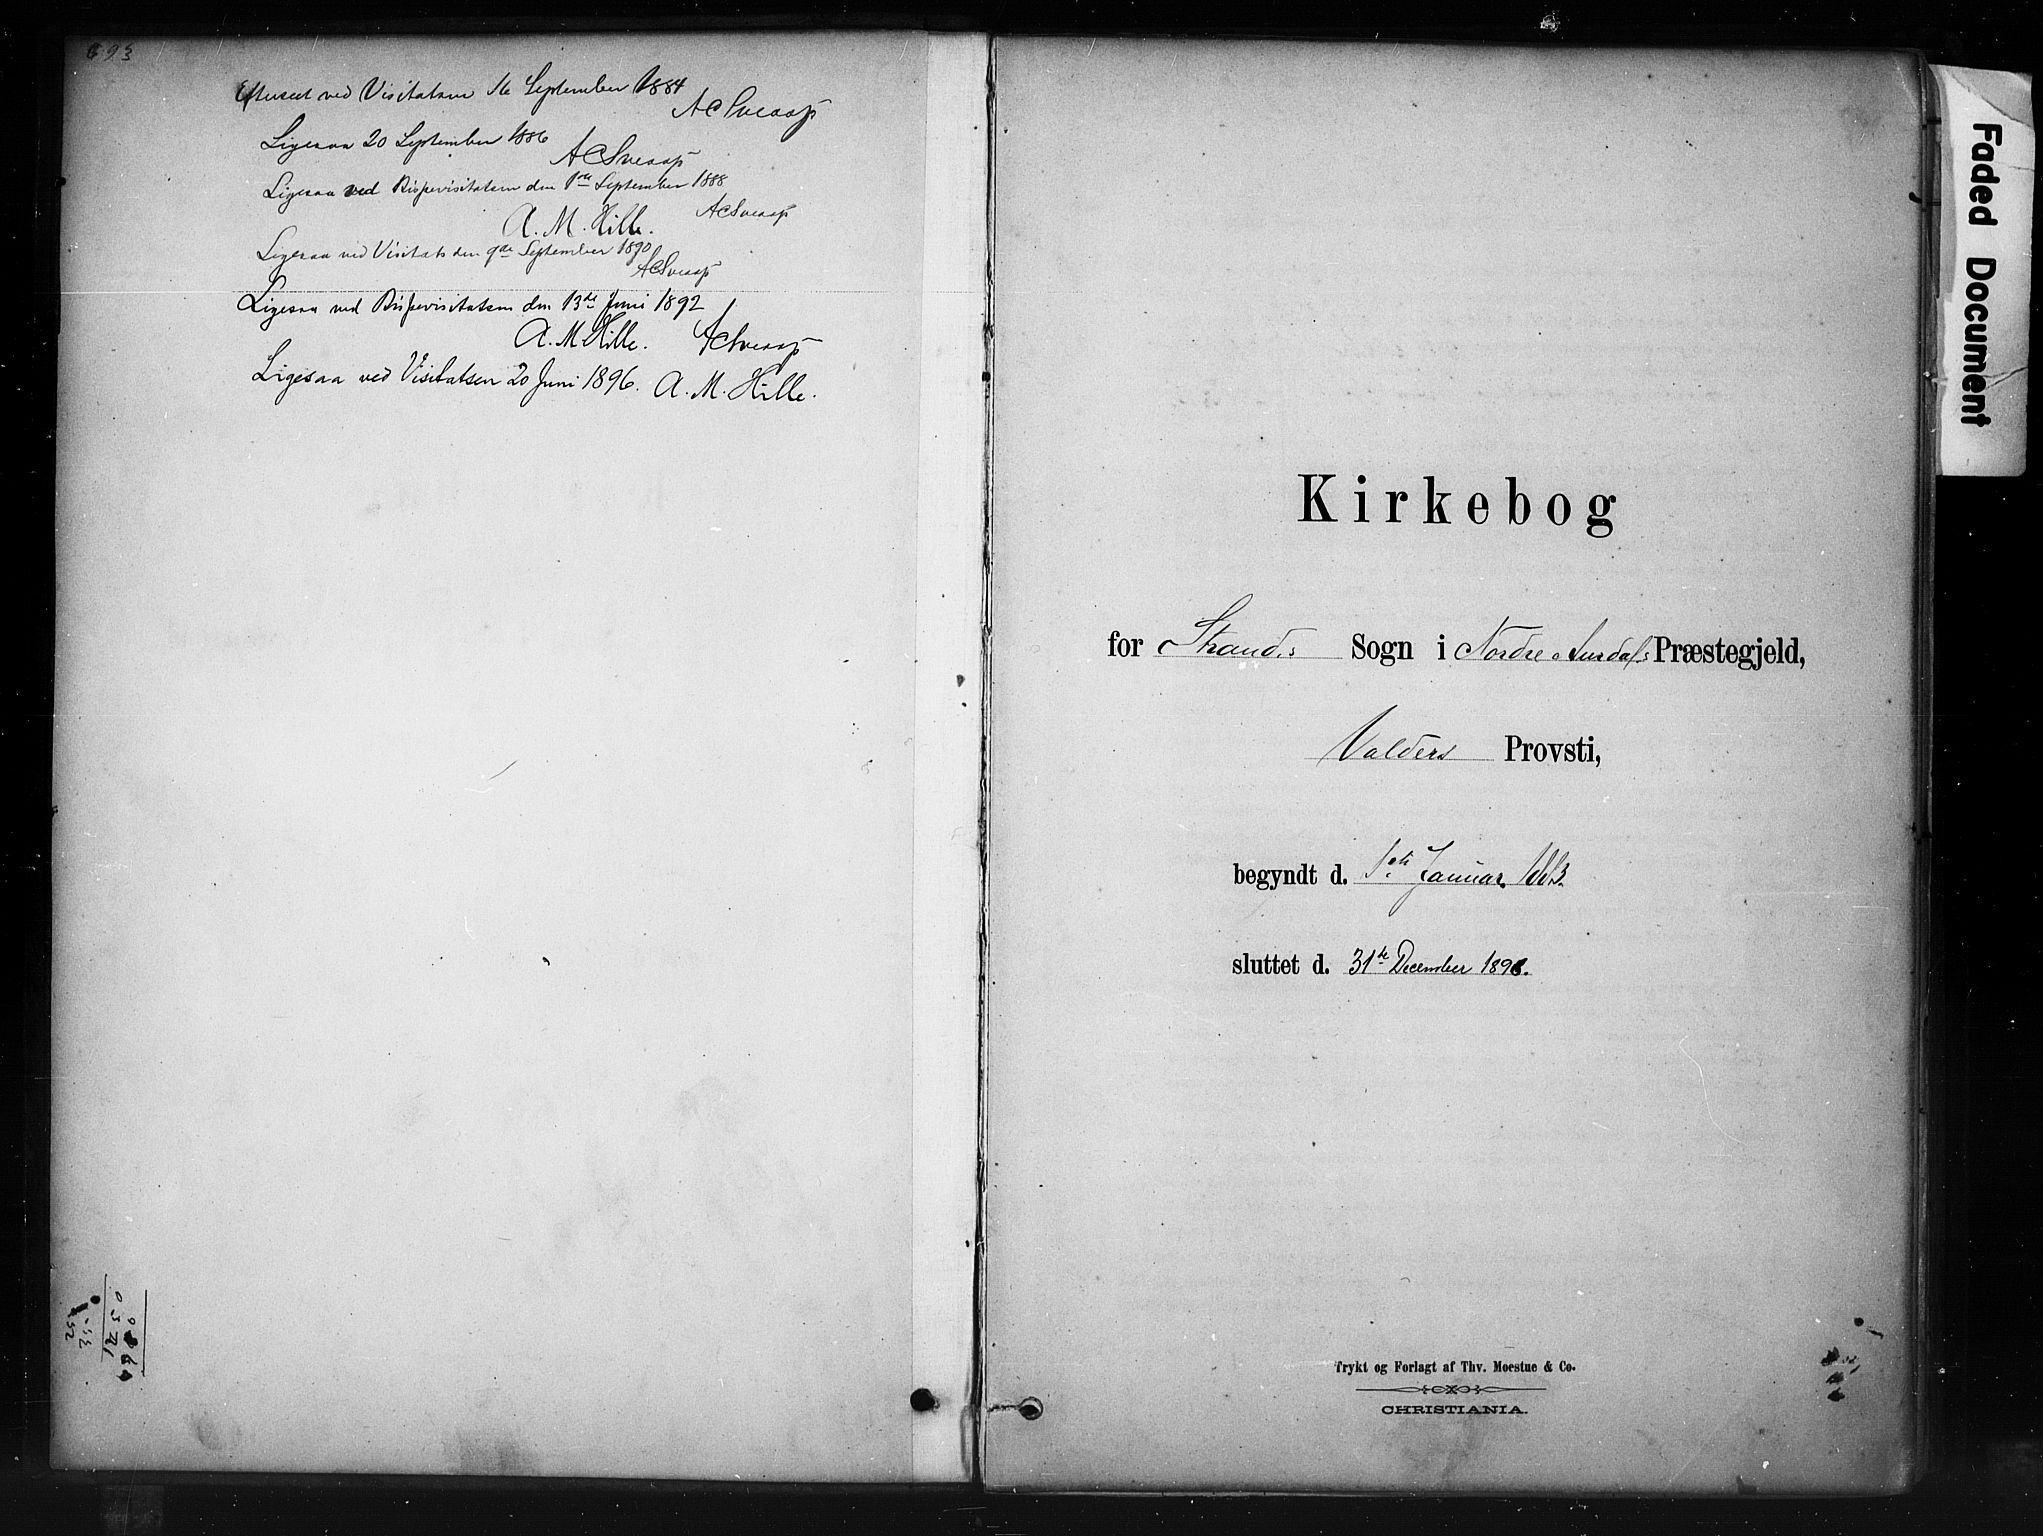 693
Efterseet ved Visitatsen 16 September 1884
A C Sveaas
Ligesaa 20 September 1886
A C Sveaas
Ligesaa ved Bispevisitatsen den 1ste September 1888
A. M. Hille. A C Sveaas
Ligesaa ved Visitats den 9de September 1890
A C Sveaas
Ligesaa ved Bispevisitatsen den 13de Juni 1892
A. M. Hille. A C Sveaas
Ligesaa ved Visitatsen 20 Juni 1896. A. M. Hille.
Kirkebog
for Strands Sogn i Nordre Aurdals Præstegjeld,
Valders Provsti,
begyndt d. 1ste Januar 1883.
sluttet d. 31te December 1898.
Trykt og Forlagt af Thv. Moestue & Co.
CHRISTIANIA.
Faded Document